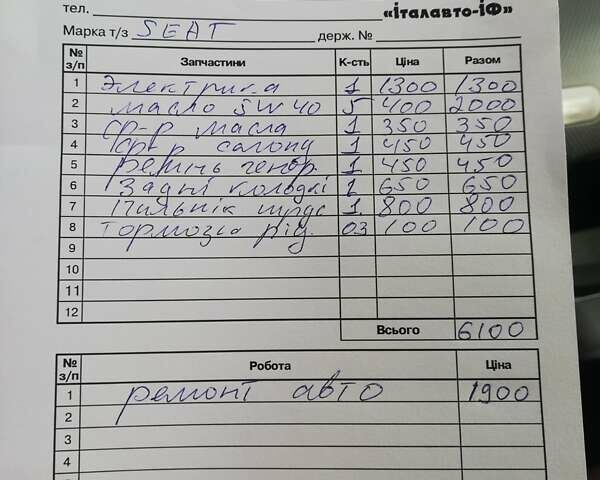 тел. «італавто-іФ»
Марка т/з SEAT держ. №
№ з/п Запчастини К-сть Ціна Разом
1 Электрика 1 1300 1300
2 масло 5W40 5 400 2000
3 ф-р масла 1 350 350
4 ф-р салону 1 450 450
5 Ремінь генер. 1 450 450
6 Задні колодкі 1 650 650
7 Пильнік шрус 1 800 800
8 тормозна рід. 03 100 100
9
10
11
12
Всього 6100
№ з/п Робота Ціна
1 ремонт авто 1900
2
3
4